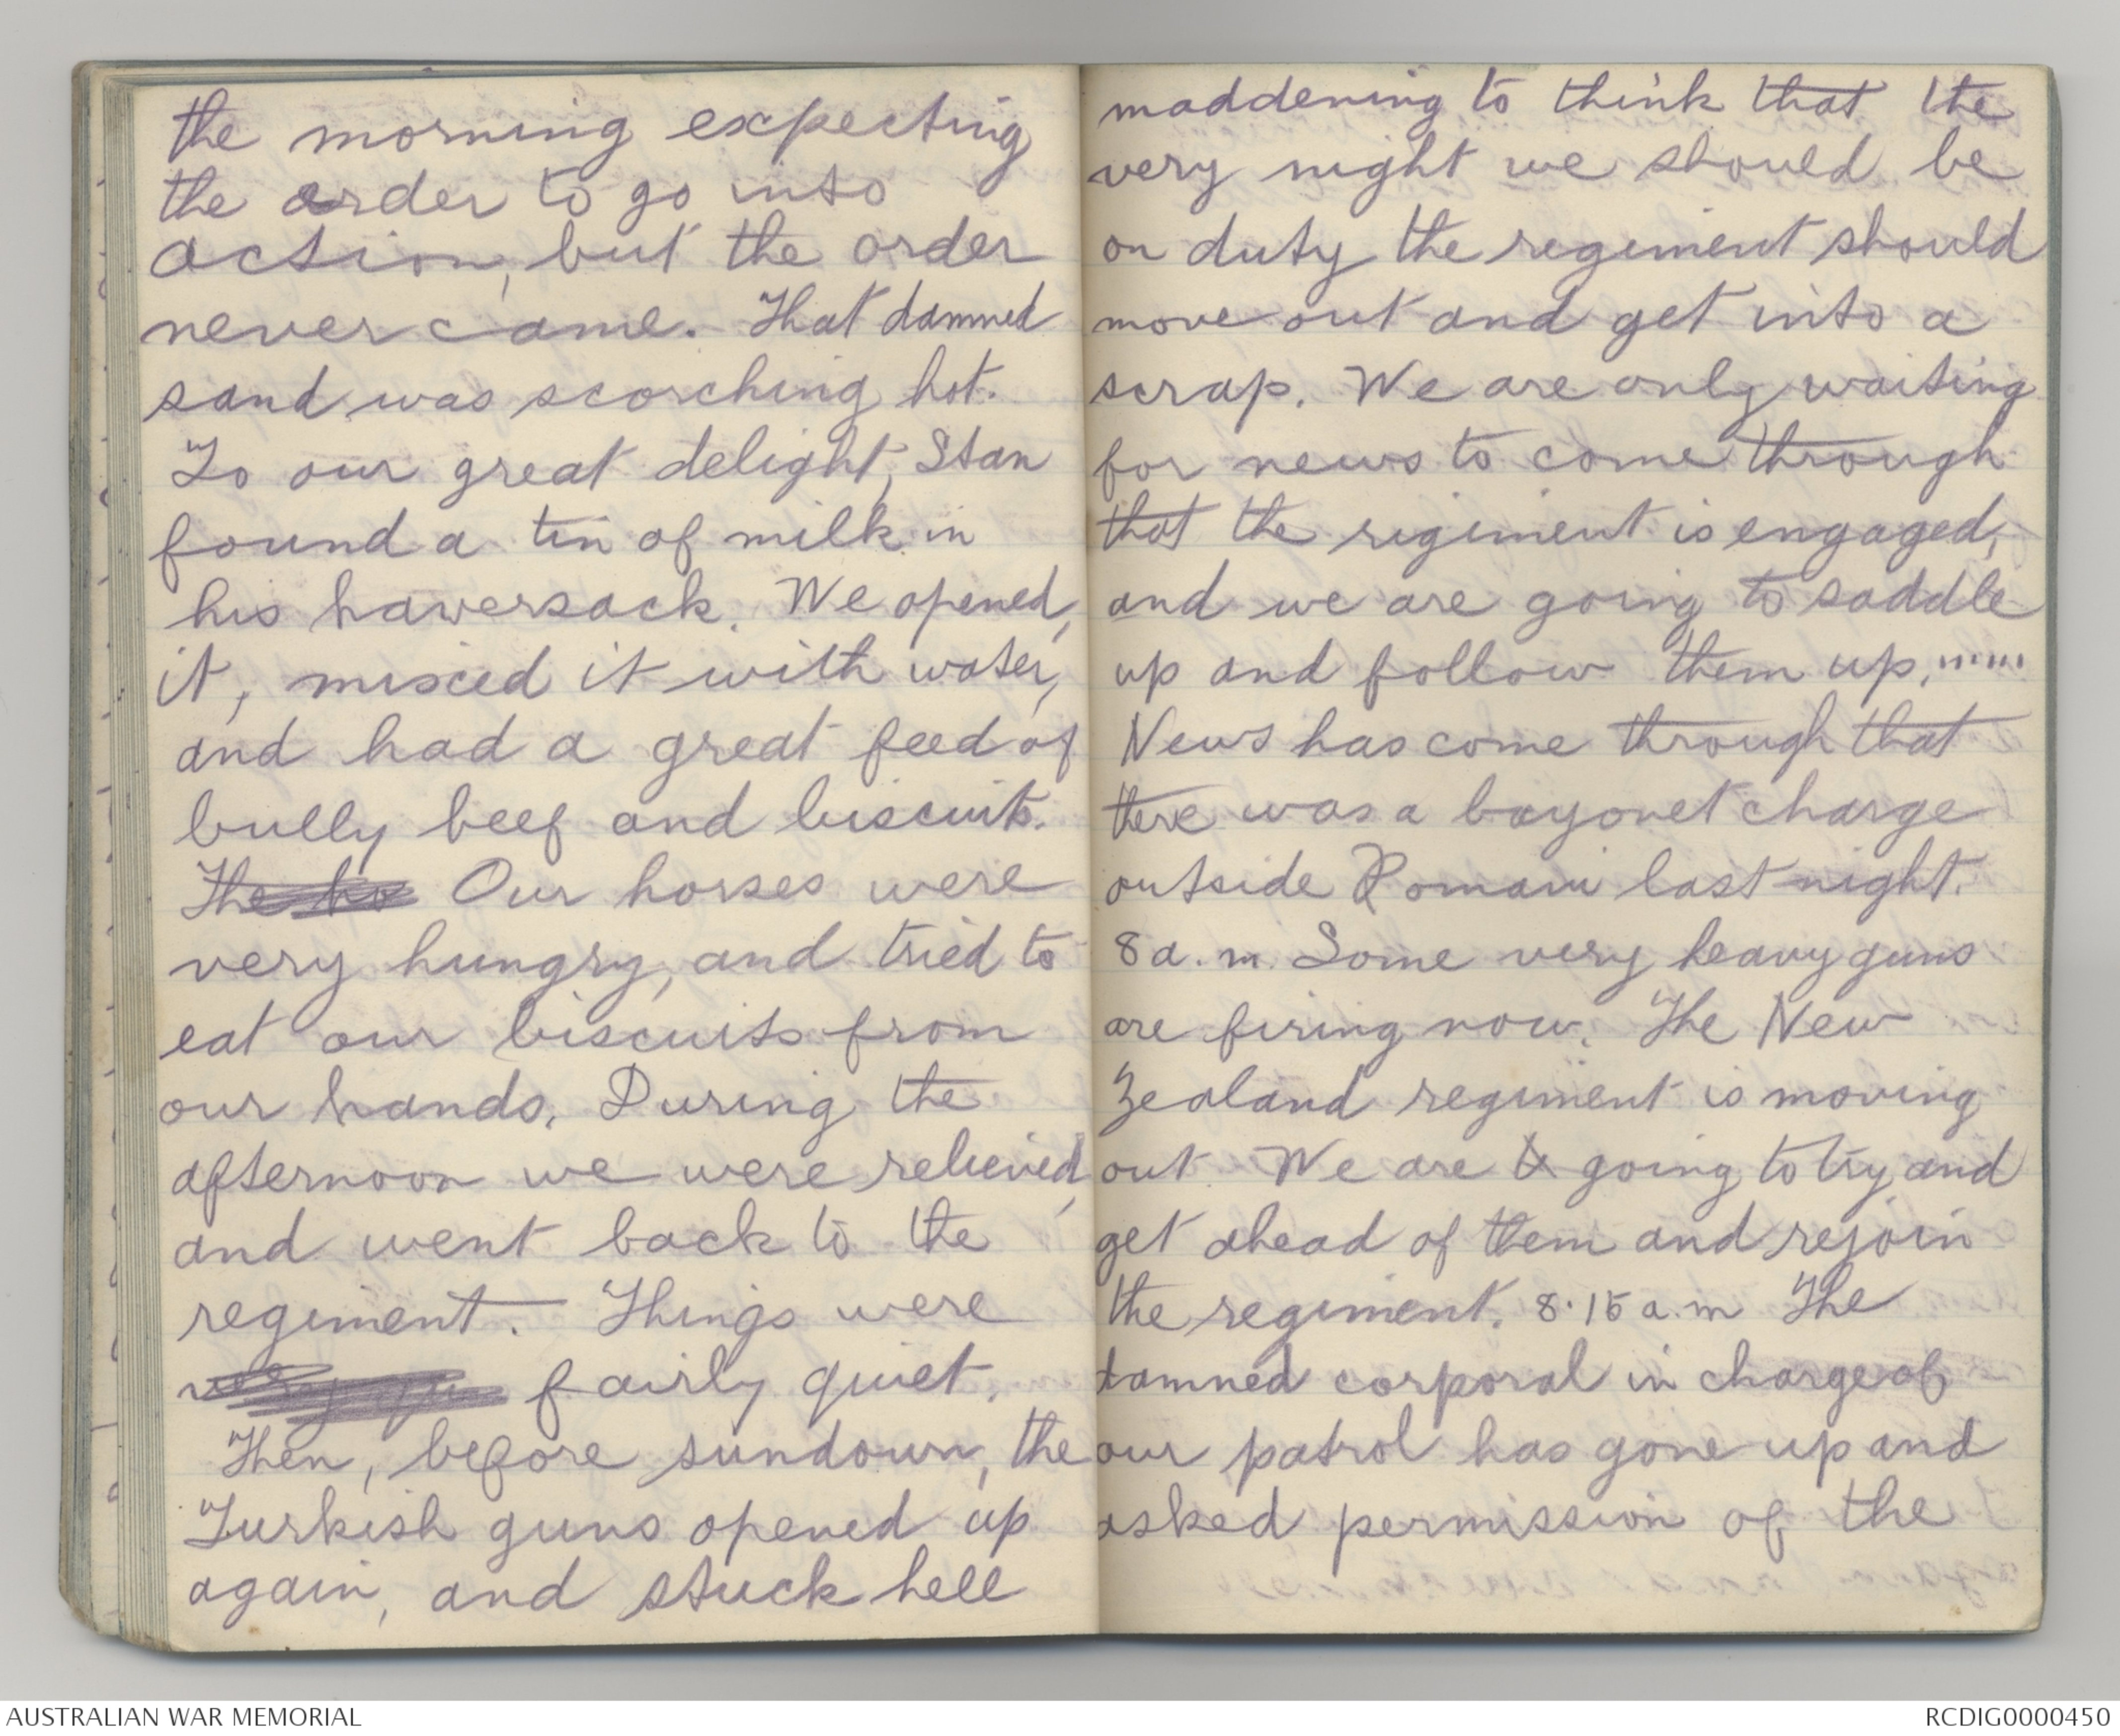 the morning expecting
the order to go into
action, but the order
never came. That damned
sand was scorching hot.
To our great delight, Stan
found a tin of milk in
his haversack. We opened,
it, mixed it with water,
and had a great feed of
bully beef and biscuits.
The ho Our horses were
very hungry, and tried to
eat our biscuits from
our hands. During the
afternoon we were relieved,
and went back to the
regiment. Things were
very qu fairly quiet.
Then, before sundown, the
Turkish guns opened up
again, and stuck hell
maddening to think that the
very night we should be
on duty the regiment should
move out and get into a
scrap. We are only waiting
for news to come through
that the rigiment is engaged,
and we are going to saddle
up and follow them up,.....
News has come through that
there was a bayonet charge
outside Romani last night.
8 a.m. Some very heavy guns
are firing now. The New
Zealand regiment is moving
out. We are to going to try and
get ahead of them and rejoin
the regiment. 8.15 a.m The
damned corporal in charge of
our patrol has gone up and
asked permission of the
AUSTRALIAN WAR MEMORIAL
RCDIG0000450